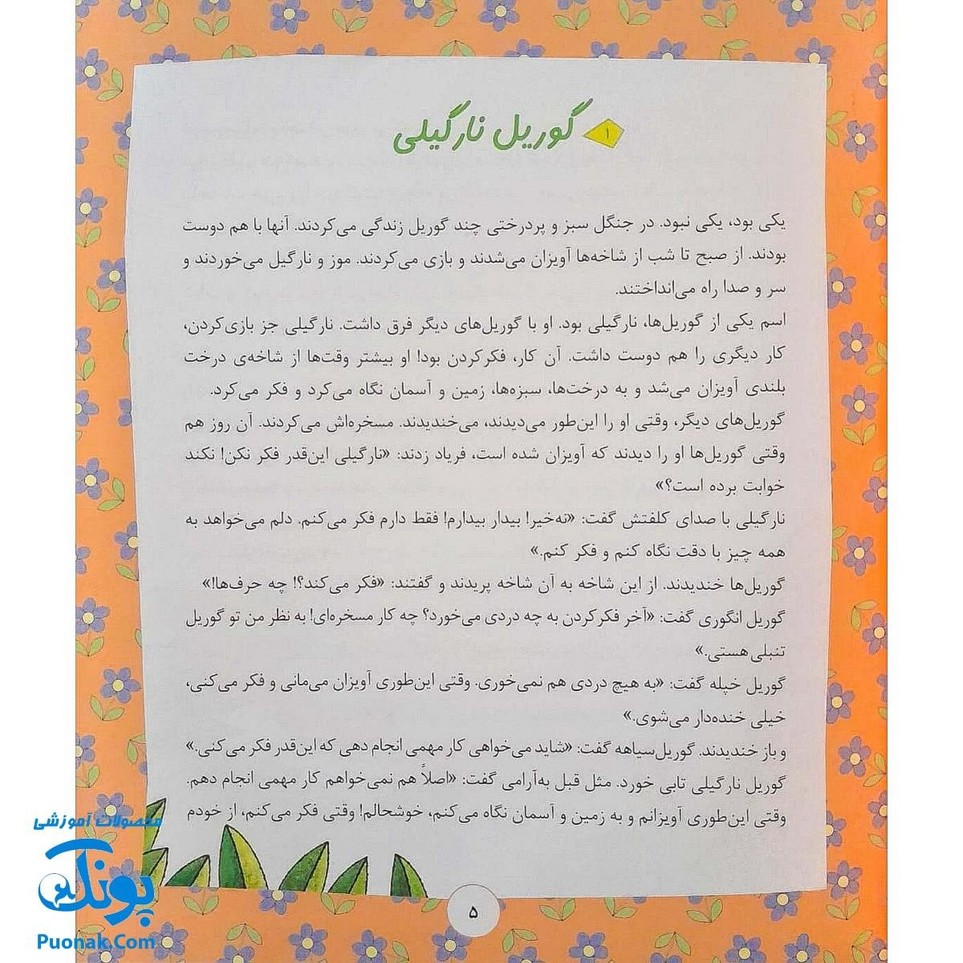 ۱
گوریل نارگیلی
یکی بود، یکی نبود. در جنگل سبز و پردرختی چند گوریل زندگی می‌کردند. آنها با هم دوست
بودند. از صبح تا شب از شاخه‌ها آویزان می‌شدند و بازی می‌کردند. موز و نارگیل می‌خوردند و
سر و صدا راه می‌انداختند.
اسم یکی از گوریل‌ها، نارگیلی بود. او با گوریل‌های دیگر فرق داشت. نارگیلی جز بازی‌کردن،
کار دیگری را هم دوست داشت. آن کار، فکرکردن بود! او بیشتر وقت‌ها از شاخه‌ی درخت
بلندی آویزان می‌شد و به درخت‌ها، سبزه‌ها، زمین و آسمان نگاه می‌کرد و فکر می‌کرد.
گوریل‌های دیگر، وقتی او را این‌طور می‌دیدند، می‌خندیدند. مسخره‌اش می‌کردند. آن روز هم
وقتی گوریل‌ها او را دیدند که آویزان شده است، فریاد زدند: «نارگیلی این‌قدر فکر نکن! نکند
خوابت برده است؟»
نارگیلی با صدای کلفتش گفت: «نه‌خیر! بیدار بیدارم! فقط دارم فکر می‌کنم. دلم می‌خواهد به
همه چیز با دقت نگاه کنم و فکر کنم.»
گوریل‌ها خندیدند. از این شاخه به آن شاخه پریدند و گفتند: «فکر می‌کند؟! چه حرف‌ها!»
گوریل انگوری گفت: «آخر فکرکردن به چه دردی می‌خورد؟ چه کار مسخره‌ای! به نظر من تو گوریل
تنبلی هستی.»
گوریل خپله گفت: «به هیچ دردی هم نمی‌خوری. وقتی این‌طوری آویزان می‌مانی و فکر می‌کنی،
خیلی خنده‌دار می‌شوی.»
و باز خندیدند. گوریل‌سیاهه گفت: «شاید می‌خواهی کار مهمی انجام دهی که این‌قدر فکر می‌کنی.»
گوریل نارگیلی تابی خورد. مثل قبل به‌آرامی گفت: «اصلاً هم نمی‌خواهم کار مهمی انجام دهم.
وقتی این‌طوری آویزانم و به زمین و آسمان نگاه می‌کنم، خوشحالم! وقتی فکر می‌کنم، از خودم
۵
محصولات آموزشی
پونک
Puonak.Com